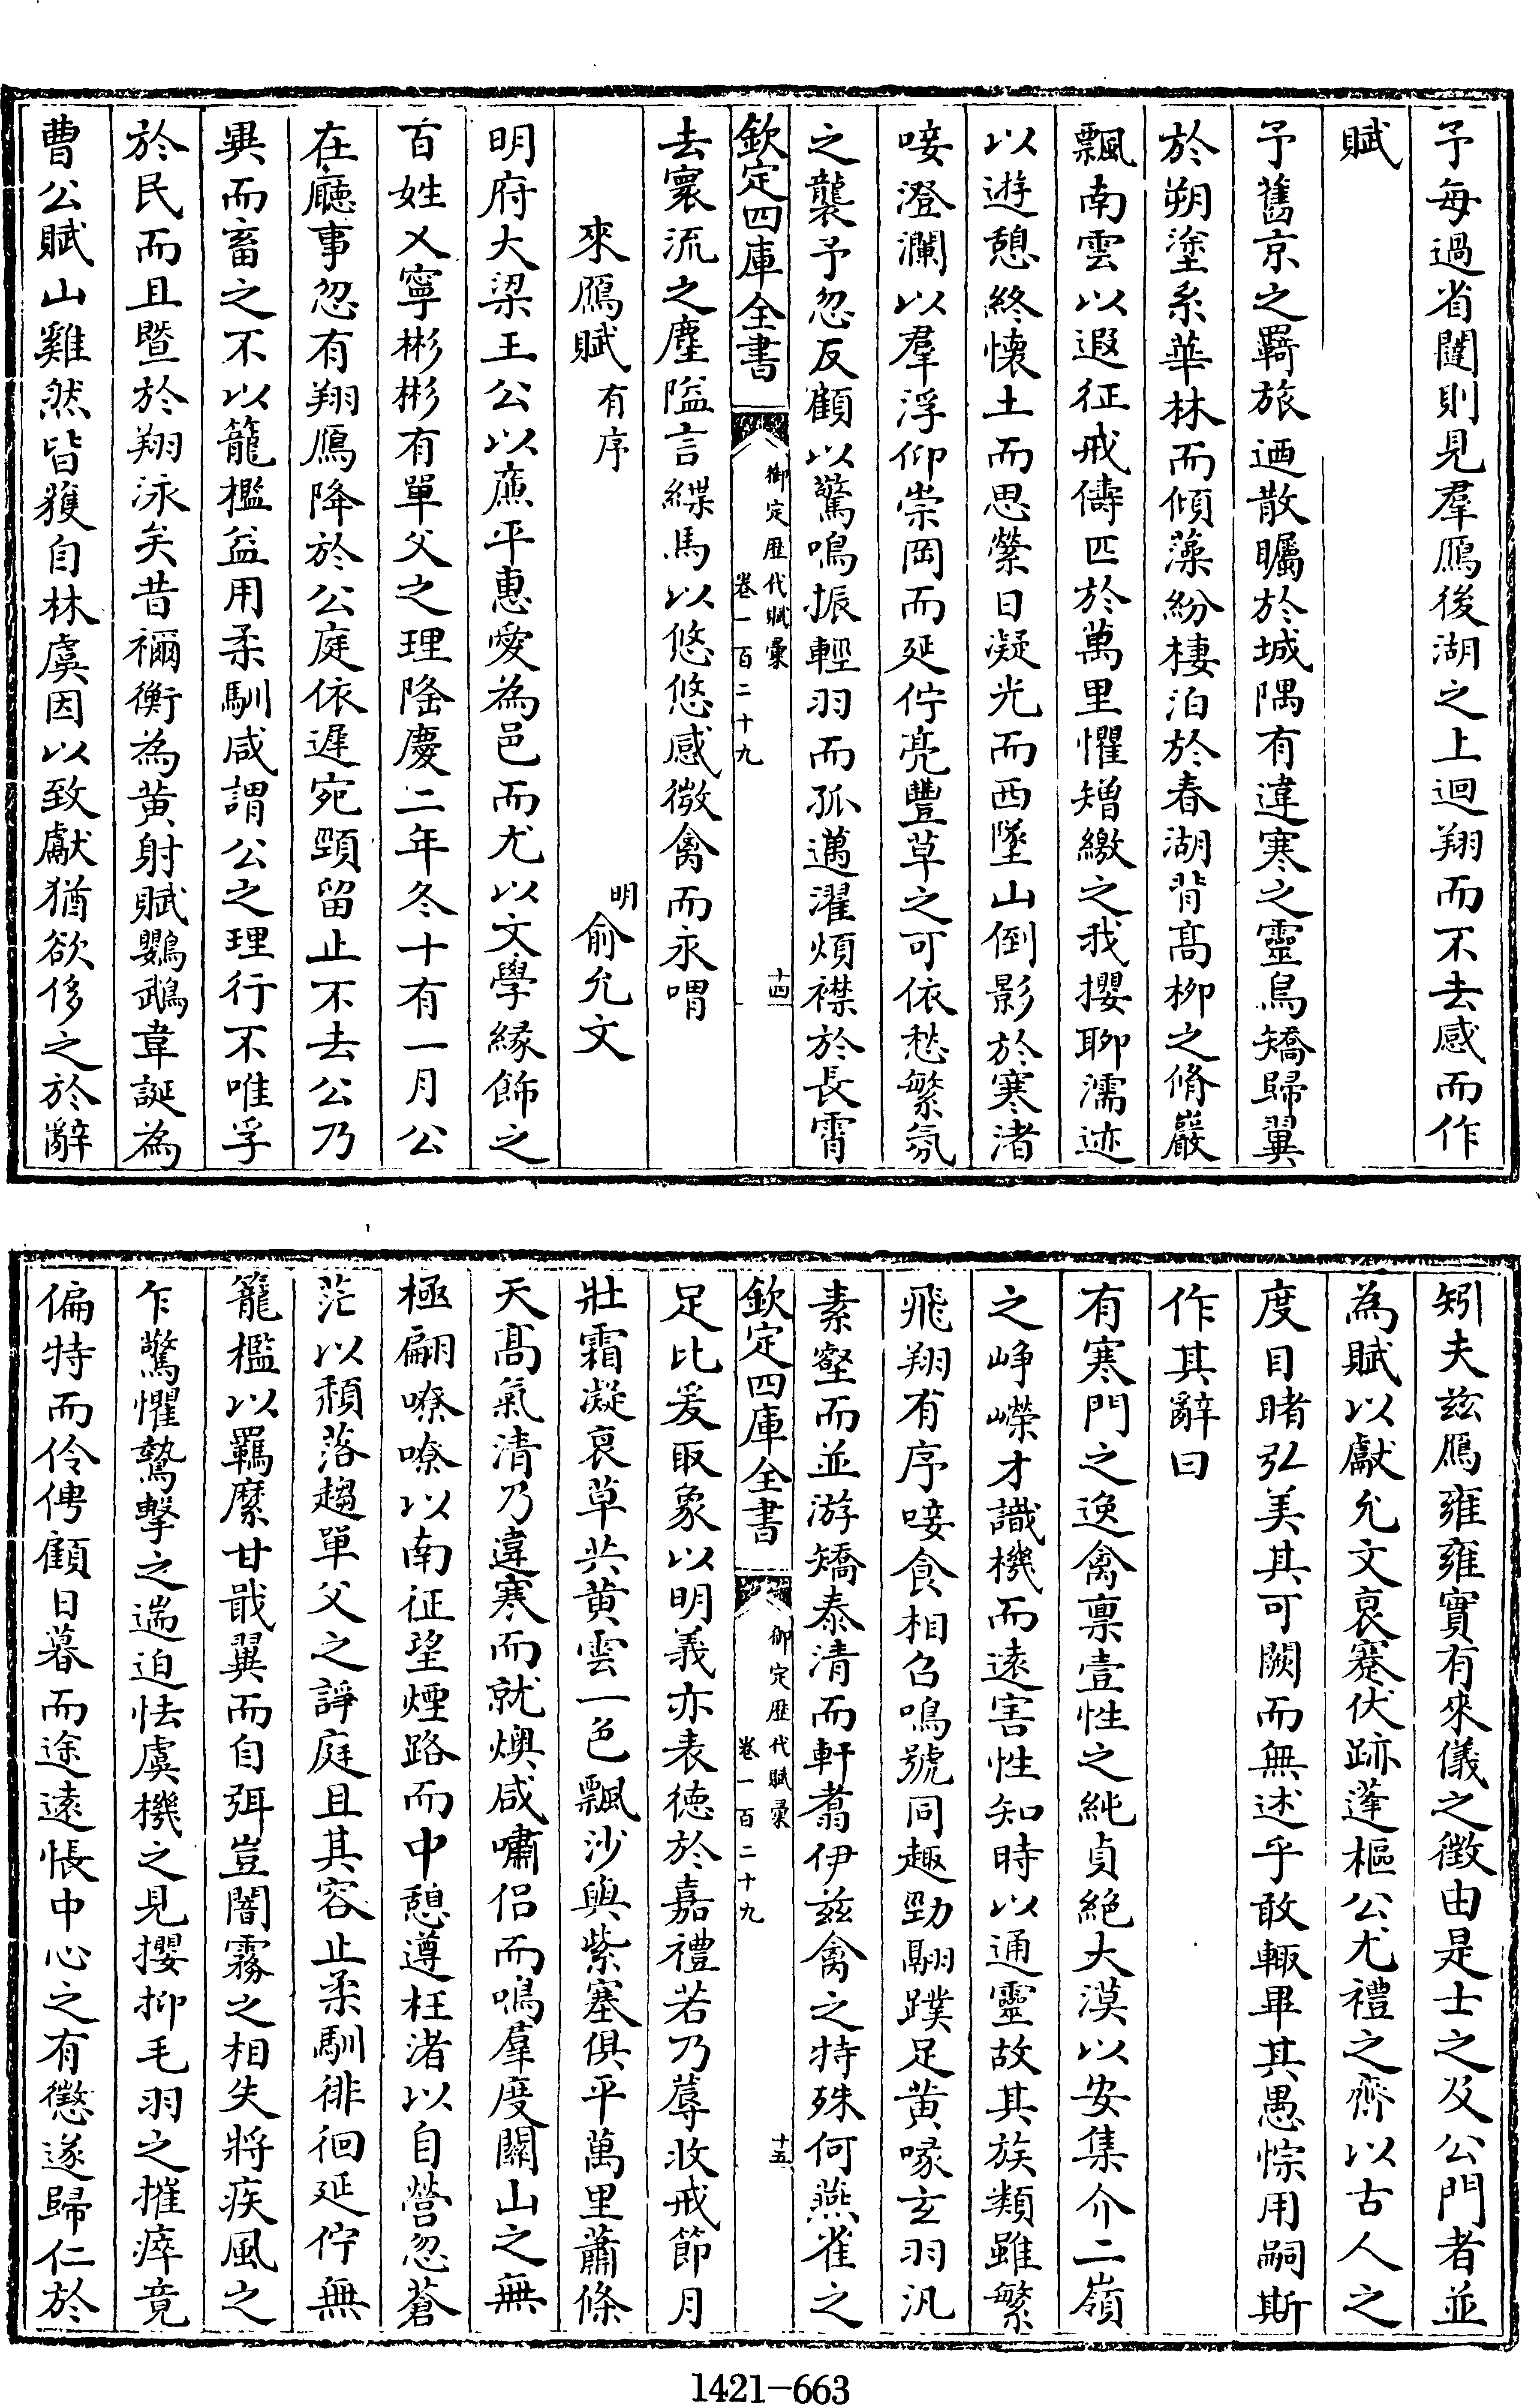 予每過省闥則見羣鴈後湖之上迴翔而不去感而作
賦
予舊京之羇旅迺散矚於城隅有違寒之靈鳥矯歸翼
於朔塗系華林而傾藻紛棲泊於春湖背髙柳之脩巖
飄南雲以遐征戒儔匹於萬里懼矰繳之我攖聊濡迹
以遊憩終懷土而思縈日凝光而西墜山倒影於寒渚
唼澄瀾以羣浮仰崇岡而延佇亮豐草之可依愁繁氛
之襲予忽反顧以驚鳴振輕羽而孤邁濯煩襟於長霄
欽定四庫全書
御定歷代賦彙
卷一百二十九
十四
去寰流之塵隘言緤馬以悠悠感微禽而永喟
來鴈賦有序
明俞允文
明府大梁王公以廉平惠愛為邑而尤以文學緣飾之
百姓乂寧彬彬有單父之理隆慶二年冬十有一月公
在廳事忽有翔鴈降於公庭依遲宛頸留止不去公乃
異而畜之不以籠檻益用柔馴咸謂公之理行不唯孚
於民而且暨於翔泳矣昔禰衡為黃射賦鸚鵡韋誕為
曹公賦山雞然皆獲自林虞因以致獻猶欲侈之於辭
矧夫兹鴈雍雍實有來儀之徵由是士之及公門者並
為賦以獻允文哀蹇伏跡蓬樞公尤禮之齊以古人之
度目睹弘美其可闕而無述乎敢輙畢其愚悰用嗣斯
作其辭曰
有寒門之逸禽禀壹性之純貞絶大漠以安集介二嶺
之崢嶸才識機而遠害性知時以通靈故其族類雖繁
飛翔有序唼食相召鳴號同趣勁翮蹼足黃喙玄羽汎
素壑而並游矯泰清而軒翥伊兹禽之特殊何燕雀之
欽定四庫全書
御定歷代賦彙
卷一百二十九
十五
足比爰取象以明義亦表徳於嘉禮若乃蓐收戒節月
壯霜凝哀草共黃雲一色飄沙與紫塞俱平萬里蕭條
天髙氣清乃違寒而就燠咸嘯侣而鳴羣度關山之無
極翩嘹嘹以南征望煙路而中憩遵枉渚以自營忽蒼
茫以頹落趨單父之諍庭且其容止柔馴徘徊延佇無
籠檻以羈縻甘戢翼而自弭豈闇霧之相失將疾風之
乍驚懼鷙擊之遄迫怯虞機之見攖抑毛羽之摧瘁竟
偏特而伶俜顧日暮而途遠悵中心之有懲遂歸仁於
1421-663